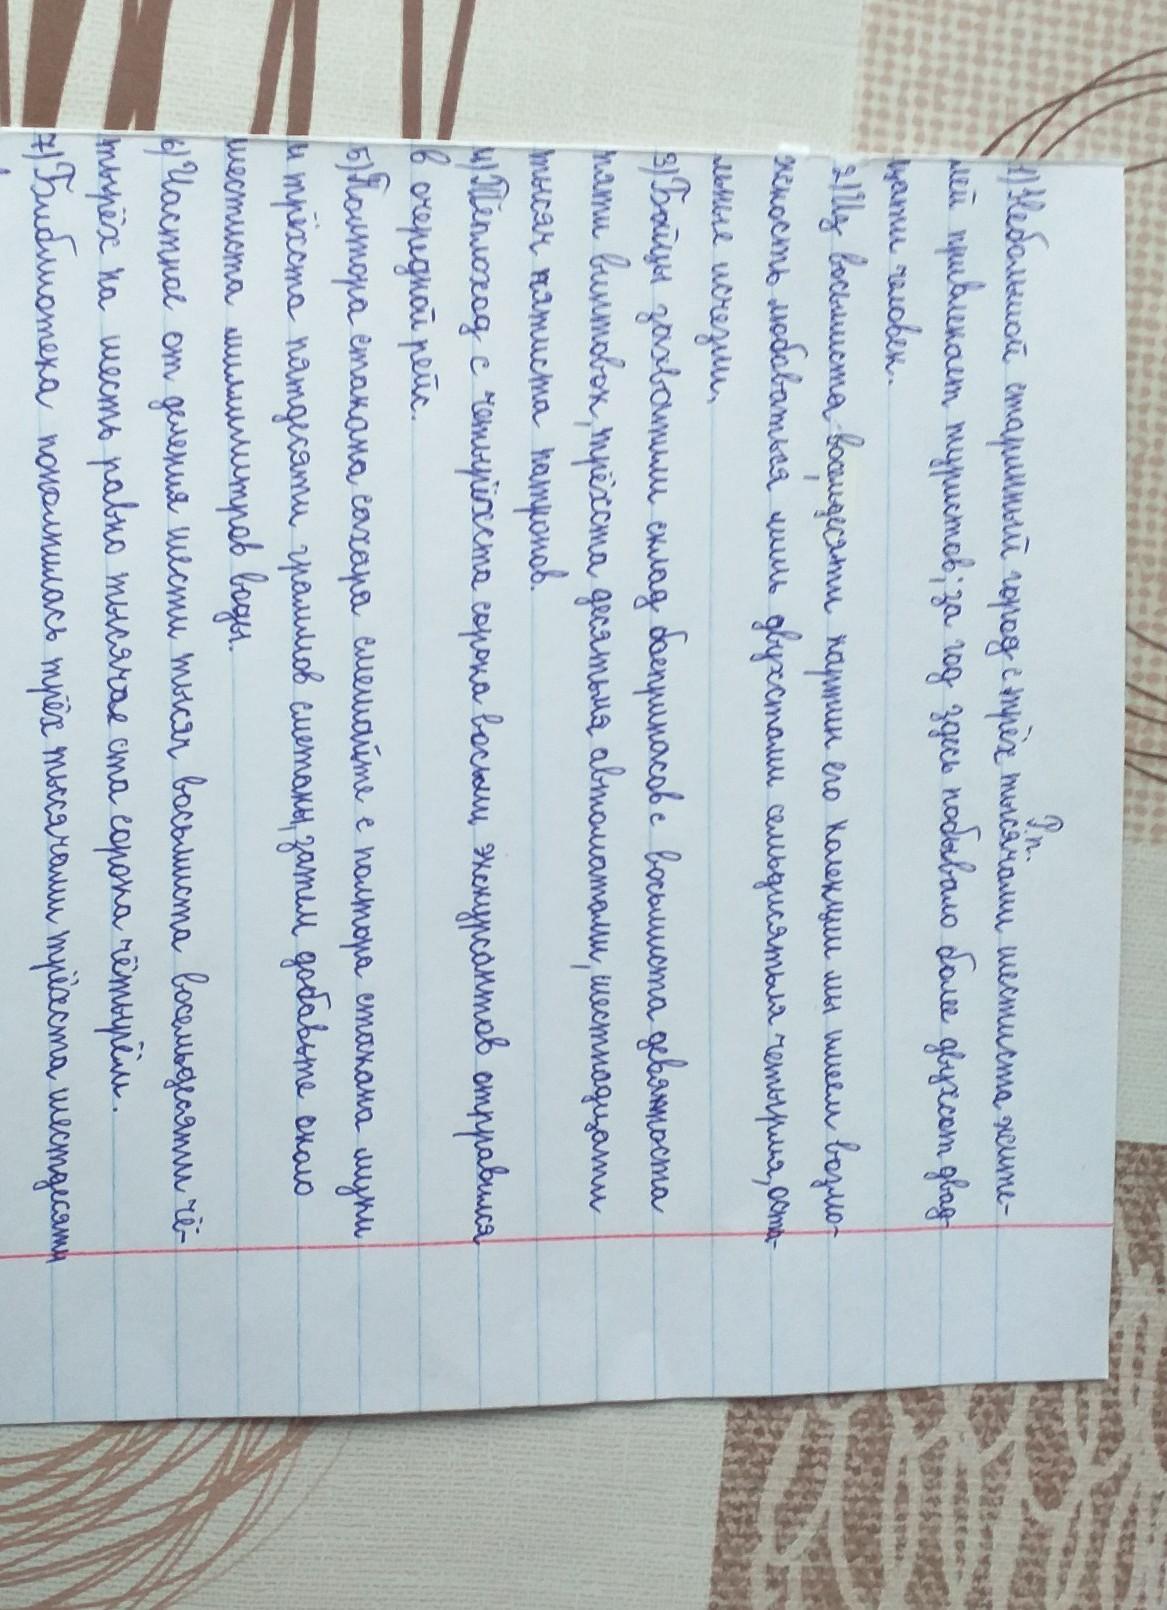 Р.п.
1) Небольшой старинный город с трёх тысячами шестиста жите-
лей привлекает туристов; за год здесь побывало более двухсот двад-
цати человек.
2) Из восьмиста восьмидесяти картин его колекции мы имеем возмо-
жность любоваться лишь двухстами семьдисятьмя четырмя, оста-
льные исчезли.
3) Бойцы захватили склад боеприпасов с восьмиста девяноста
пяти винтовок, трёхста десятьмя автоматами, шестнадцати
тысяч пятиста патронов.
4) Теплоход с четырёхста сорока восьми экскурсантов отправился
в очередной рейс.
5) Полтора стакана сахара смешайте с полтора стакана муки
и трёхста пятдесяти граммов сметаны, затем добавьте около
шестиста миллилитров воды.
6) Частное от деления шести тысяч восьмиста восемьдесяти чё-
тырёх на шесть равно тысячае ста сорока чётырём.
7) Библиотека пополнилась трёх тысячами трёхста шестдесяти